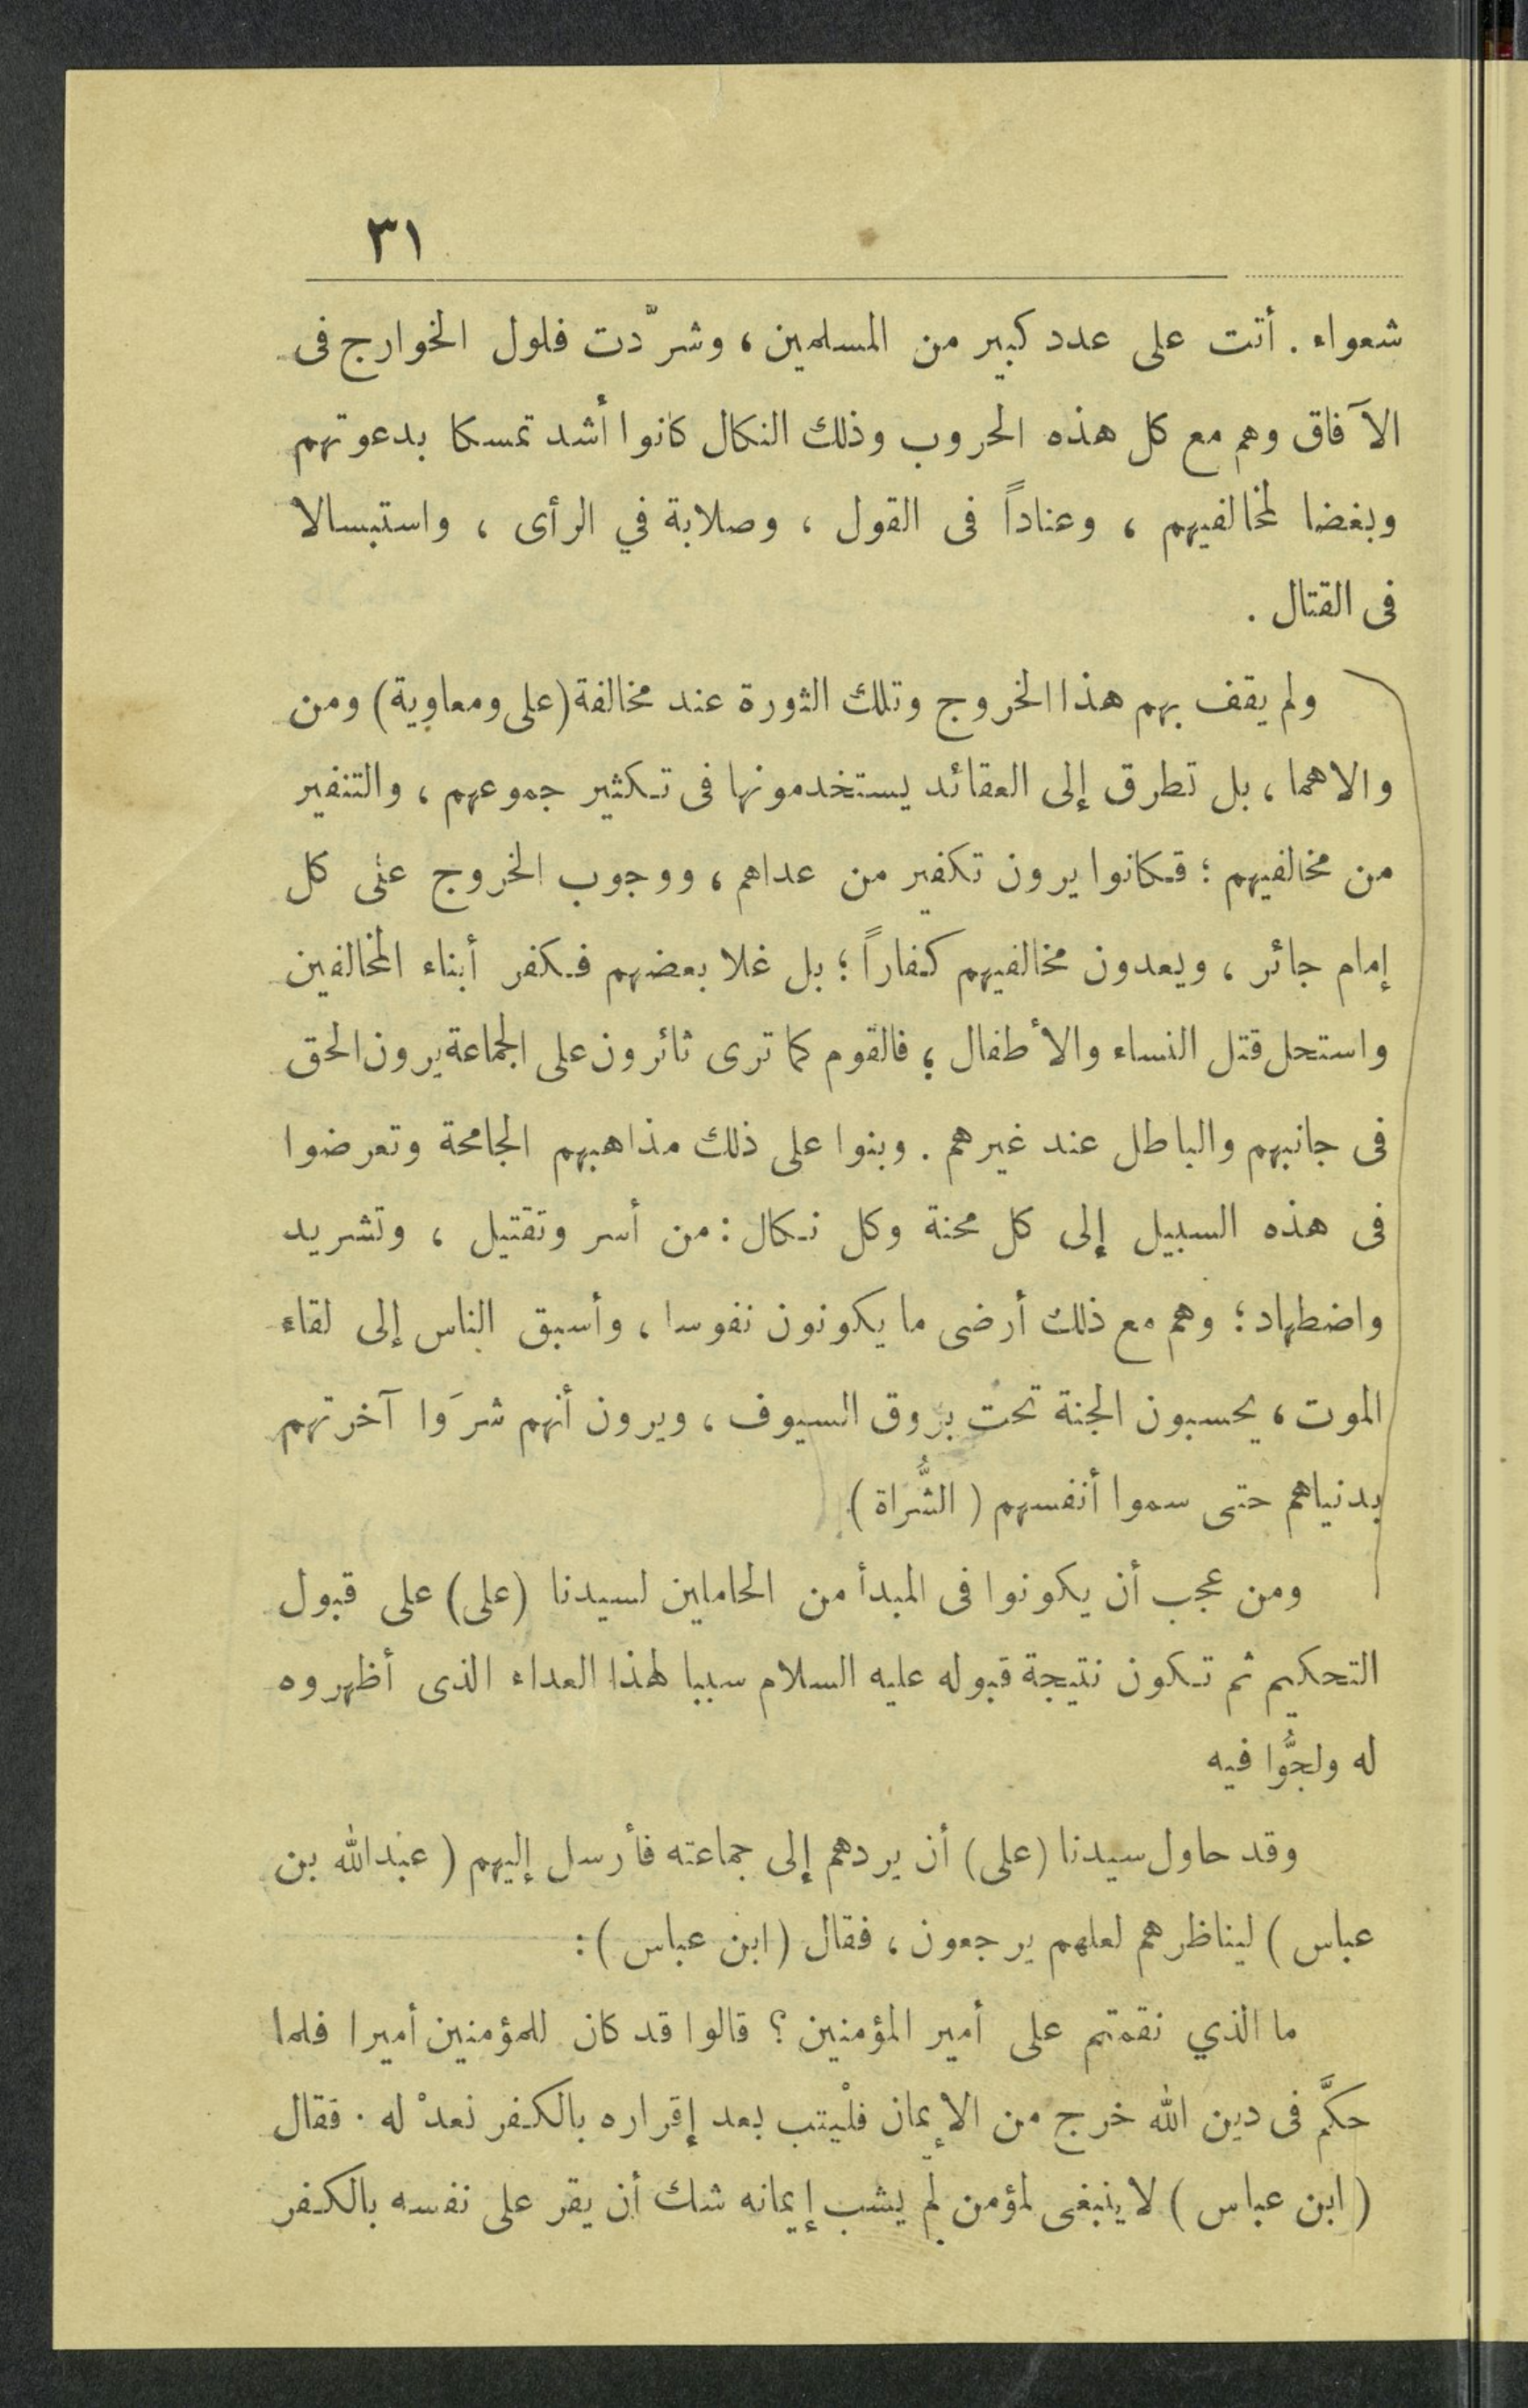 ٣١
شعواء . أتت على عدد كبير من المسلمين ، وشرّدت فلول الخوارج فى
الآفاق وهم مع كل هذه الحروب وذلك النكال كانوا أشد تمسكا بدعوتهم
وبغضا لمخالفيهم ، وعناداً فى القول ، وصلابة في الرأى ، واستبسالا
فى القتال .
ولم يقف بهم هذا الخروج وتلك الثورة عند مخالفة (على ومعاوية) ومن
والاهما ، بل تطرق إلى العقائد يستخدمونها فى تكثير جموعهم ، والتنفير
من مخالفيهم ؛ فكانوا يرون تكفير من عداهم ، ووجوب الخروج على كل
إمام جائر ، ويعدون مخالفيهم كفاراً ؛ بل غلا بعضهم فكفر أبناء المخالفين
واستحل قتل النساء والأطفال ؛ فالقوم كما ترى ثائرون على الجماعة يرون الحق
فى جانبهم والباطل عند غيرهم . وبنوا على ذلك مذاهبهم الجامحة وتعرضوا
فى هذه السبيل إلى كل محنة وكل نكال : من أسر وتقتيل ، وتشريد
واضطهاد ؛ وهم مع ذلك أرضى ما يكونون نفوسا ، وأسبق الناس إلى لقاء
الموت ، يحسبون الجنة تحت بروق السيوف ، ويرون أنهم شرَوا آخرتهم
بدنياهم حتى سموا أنفسهم ( الشُّراة )
ومن عجب أن يكونوا فى المبدأ من الحاملين لسيدنا (على) على قبول
التحكيم ثم تكون نتيجة قبوله عليه السلام سببا لهذا العداء الذى أظهروه
له ولجُّوا فيه
وقد حاول سيدنا (على) أن يردهم إلى جماعته فأرسل إليهم ( عبدالله بن
عباس ) ليناظرهم لعلهم يرجعون ، فقال ( ابن عباس ) :
ما الذي نقمتم على أمير المؤمنين ؟ قالوا قد كان للمؤمنين أميرا فلما
حكَّم فى دين الله خرج من الإيمان فلْيتب بعد إقراره بالكفر نعدْ له . فقال
( ابن عباس ) لا ينبغى لمؤمن لم يشب إيمانه شك أن يقر على نفسه بالكفر